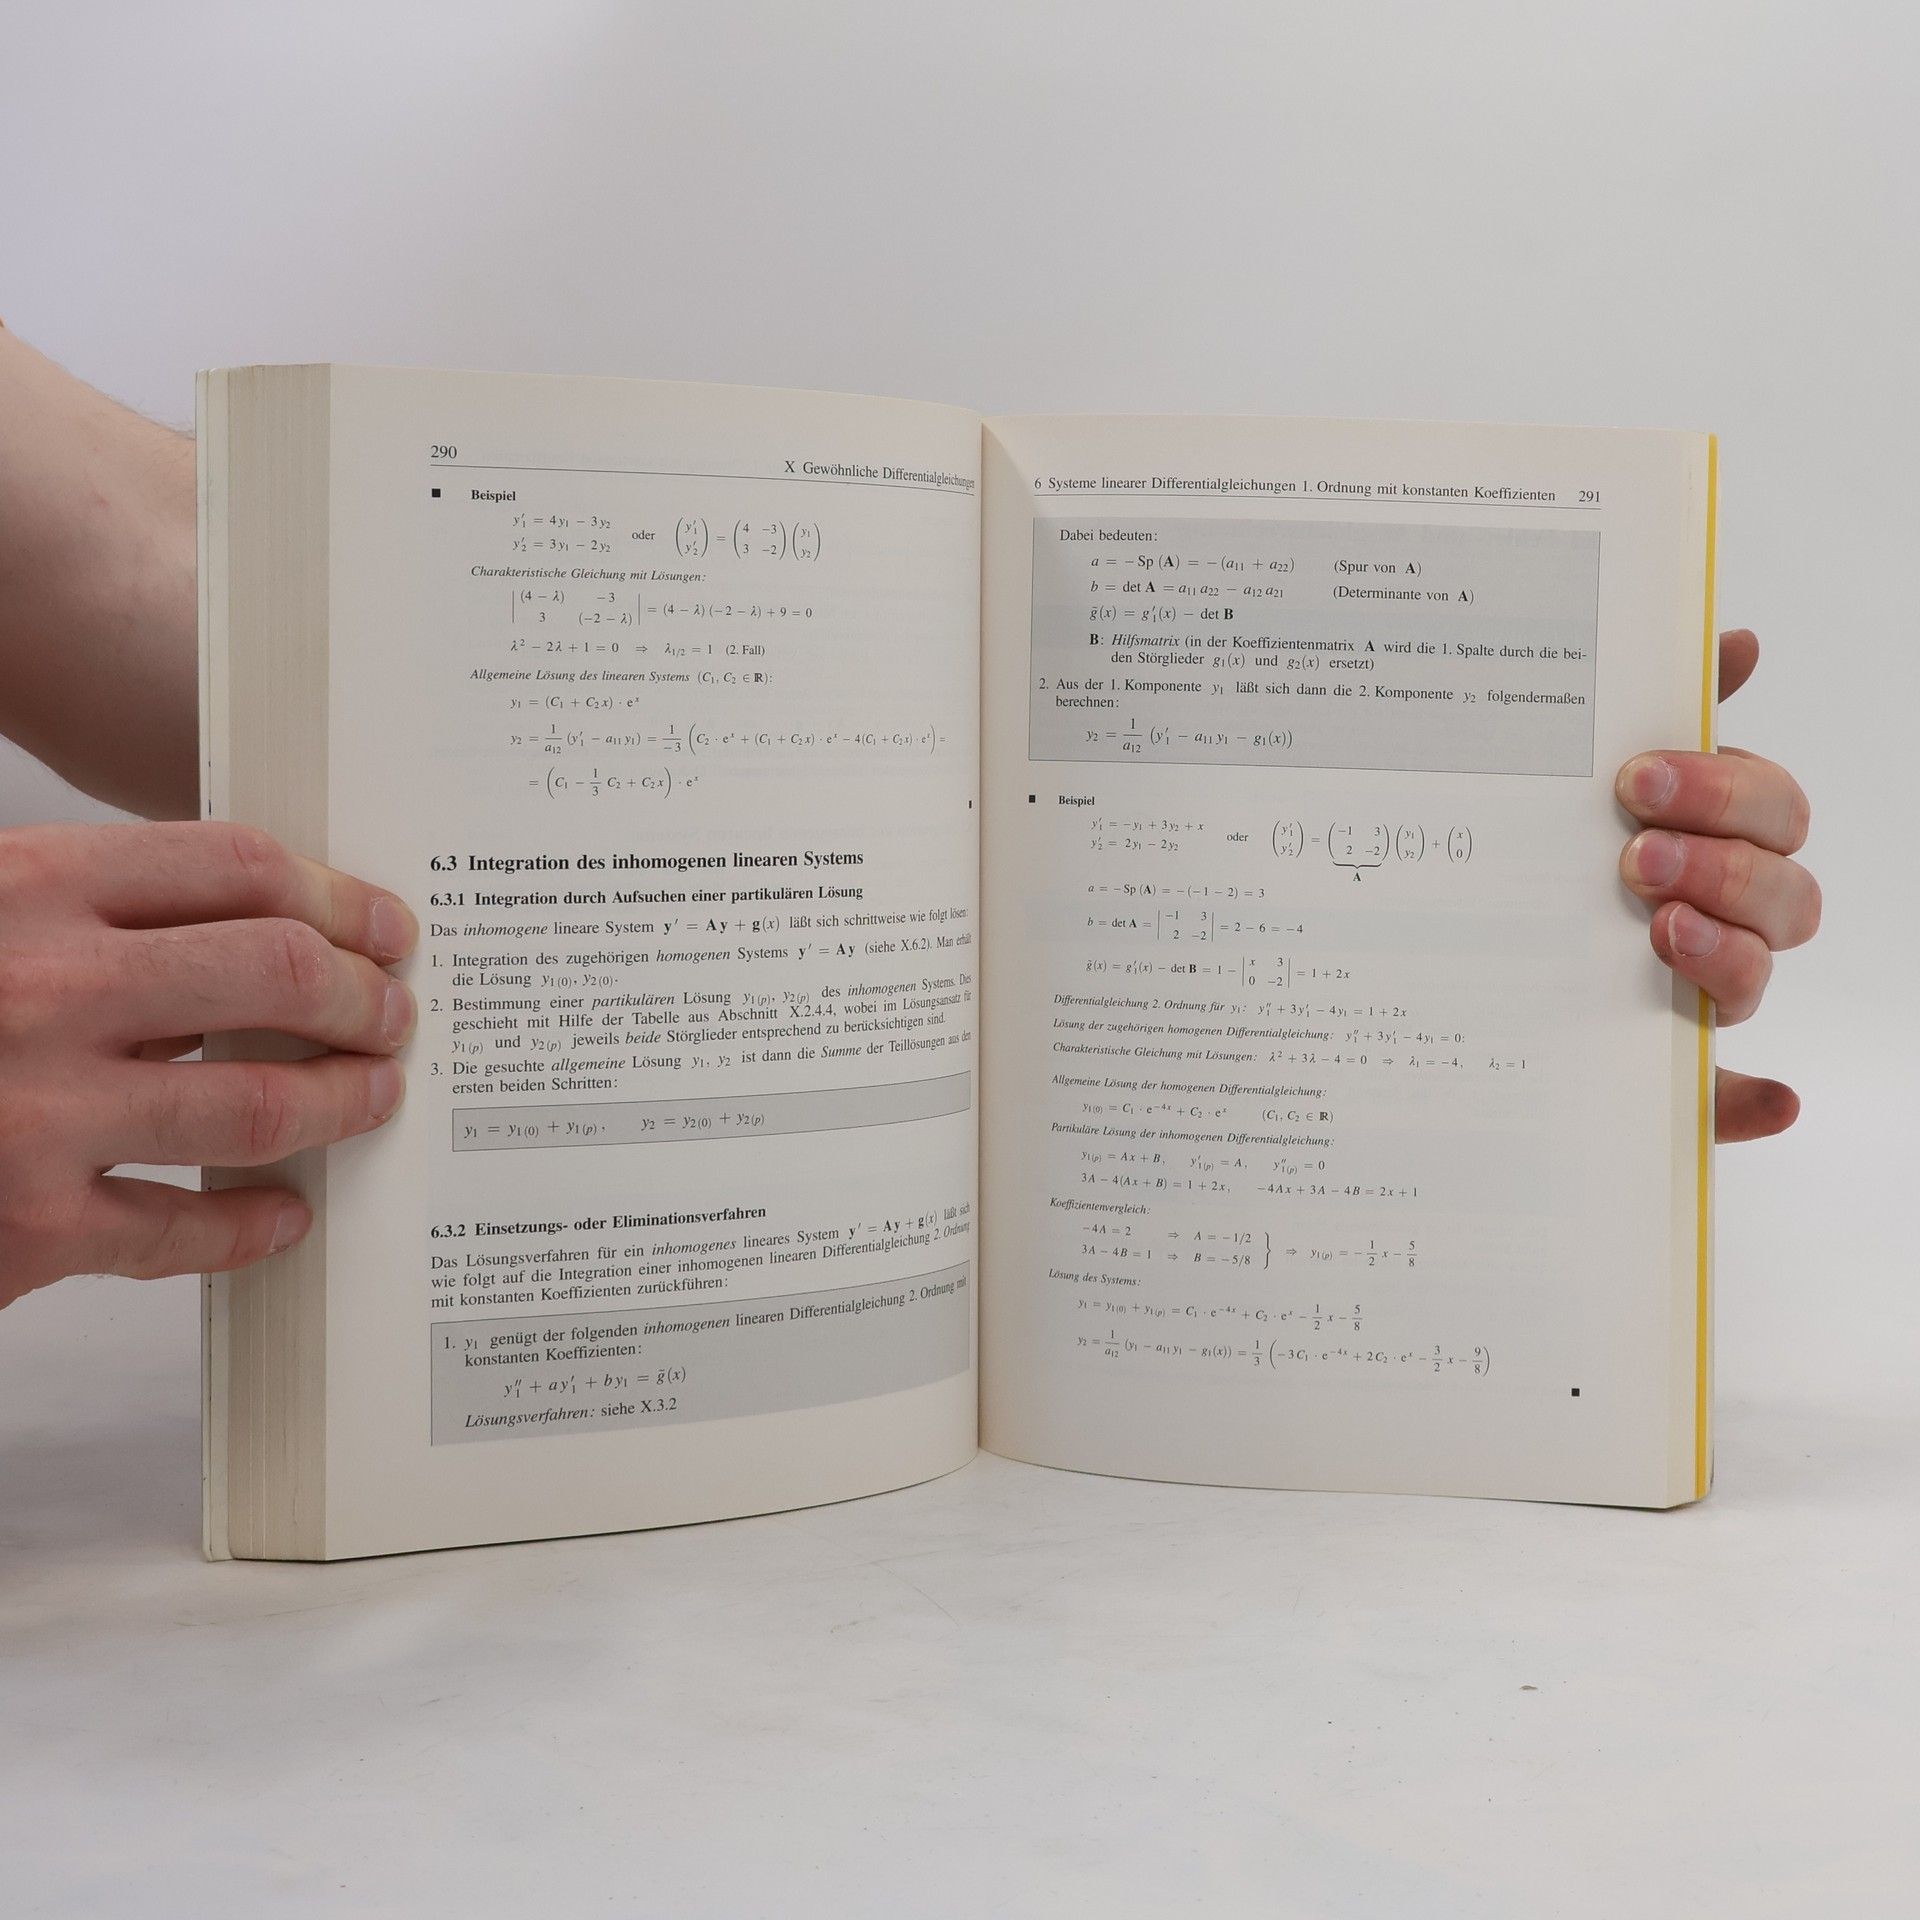 290
X Gewöhnliche Differentialgleichungen
■ Beispiel
y₁′ = 4y₁ − 3y₂
y₂′ = 3y₁ − 2y₂
oder (y₁′ y₂′) = (4 −3 3 −2) (y₁ y₂)
Charakteristische Gleichung mit Lösungen:
|(4 − λ) −3
3 (−2 − λ)| = (4 − λ)(−2 − λ) + 9 = 0
λ² − 2λ + 1 = 0 ⇒ λ₁/₂ = 1 (2. Fall)
Allgemeine Lösung des linearen Systems (C₁, C₂ ∈ ℝ):
y₁ = (C₁ + C₂x) · eˣ
y₂ = 1/a₁₂ (y₁′ − a₁₁y₁) = 1/−3 (C₂ · eˣ + (C₁ + C₂x) · eˣ − 4(C₁ + C₂x) · eˣ) =
= (C₁ − 1/3 C₂ + C₂x) · eˣ
6.3 Integration des inhomogenen linearen Systems
6.3.1 Integration durch Aufsuchen einer partikulären Lösung
Das inhomogene lineare System y′ = Ay + g(x) läßt sich schrittweise wie folgt lösen:
1. Integration des zugehörigen homogenen Systems y′ = Ay (siehe X.6.2). Man erhält
die Lösung y₁(0), y₂(0).
2. Bestimmung einer partikulären Lösung y₁(p), y₂(p) des inhomogenen Systems. Dies
geschieht mit Hilfe der Tabelle aus Abschnitt X.2.4.4, wobei im Lösungsansatz für
y₁(p) und y₂(p) jeweils beide Störglieder entsprechend zu berücksichtigen sind.
3. Die gesuchte allgemeine Lösung y₁, y₂ ist dann die Summe der Teillösungen aus den
ersten beiden Schritten:
y₁ = y₁(0) + y₁(p), y₂ = y₂(0) + y₂(p)
6.3.2 Einsetzungs- oder Eliminationsverfahren
Das Lösungsverfahren für ein inhomogenes lineares System y′ = Ay + g(x) läßt sich
wie folgt auf die Integration einer inhomogenen linearen Differentialgleichung 2. Ordnung
mit konstanten Koeffizienten zurückführen:
1. y₁ genügt der folgenden inhomogenen linearen Differentialgleichung 2. Ordnung mit
konstanten Koeffizienten:
y₁″ + ay₁′ + by₁ = g̃(x)
Lösungsverfahren: siehe X.3.2
6 Systeme linearer Differentialgleichungen 1. Ordnung mit konstanten Koeffizienten 291
Dabei bedeuten:
a = −Sp (A) = −(a₁₁ + a₂₂) (Spur von A)
b = det A = a₁₁a₂₂ − a₁₂a₂₁ (Determinante von A)
g̃(x) = g₁′(x) − det B
B: Hilfsmatrix (in der Koeffizientenmatrix A wird die 1. Spalte durch die bei-
den Störglieder g₁(x) und g₂(x) ersetzt)
2. Aus der 1. Komponente y₁ läßt sich dann die 2. Komponente y₂ folgendermaßen
berechnen:
y₂ = 1/a₁₂ (y₁′ − a₁₁y₁ − g₁(x))
■ Beispiel
y₁′ = −y₁ + 3y₂ + x
y₂′ = 2y₁ − 2y₂
oder (y₁′ y₂′) = (−1 3 2 −2) (y₁ y₂) + (x 0)
A
a = −Sp (A) = −(−1 − 2) = 3
b = det A = |−1 3 2 −2| = 2 − 6 = −4
g̃(x) = g₁′(x) − det B = 1 − |x 3 0 −2| = 1 + 2x
Differentialgleichung 2. Ordnung für y₁: y₁″ + 3y₁′ − 4y₁ = 1 + 2x
Lösung der zugehörigen homogenen Differentialgleichung: y₁″ + 3y₁′ − 4y₁ = 0:
Charakteristische Gleichung mit Lösungen: λ² + 3λ − 4 = 0 ⇒ λ₁ = −4, λ₂ = 1
Allgemeine Lösung der homogenen Differentialgleichung:
y₁(0) = C₁ · e⁻⁴ˣ + C₂ · eˣ (C₁, C₂ ∈ ℝ)
Partikuläre Lösung der inhomogenen Differentialgleichung:
y₁(p) = Ax + B, y₁′(p) = A, y₁″(p) = 0
3A − 4(Ax + B) = 1 + 2x, −4Ax + 3A − 4B = 2x + 1
Koeffizientenvergleich:
−4A = 2 ⇒ A = −1/2
3A − 4B = 1 ⇒ B = −5/8 } ⇒ y₁(p) = −1/2 x − 5/8
Lösung des Systems:
y₁ = y₁(0) + y₁(p) = C₁ · e⁻⁴ˣ + C₂ · eˣ − 1/2 x − 5/8
y₂ = 1/a₁₂ (y₁ − a₁₁y₁ − g₁(x)) = 1/3 (−3C₁ · e⁻⁴ˣ + 2C₂ · eˣ − 3/2 x − 9/8)
■